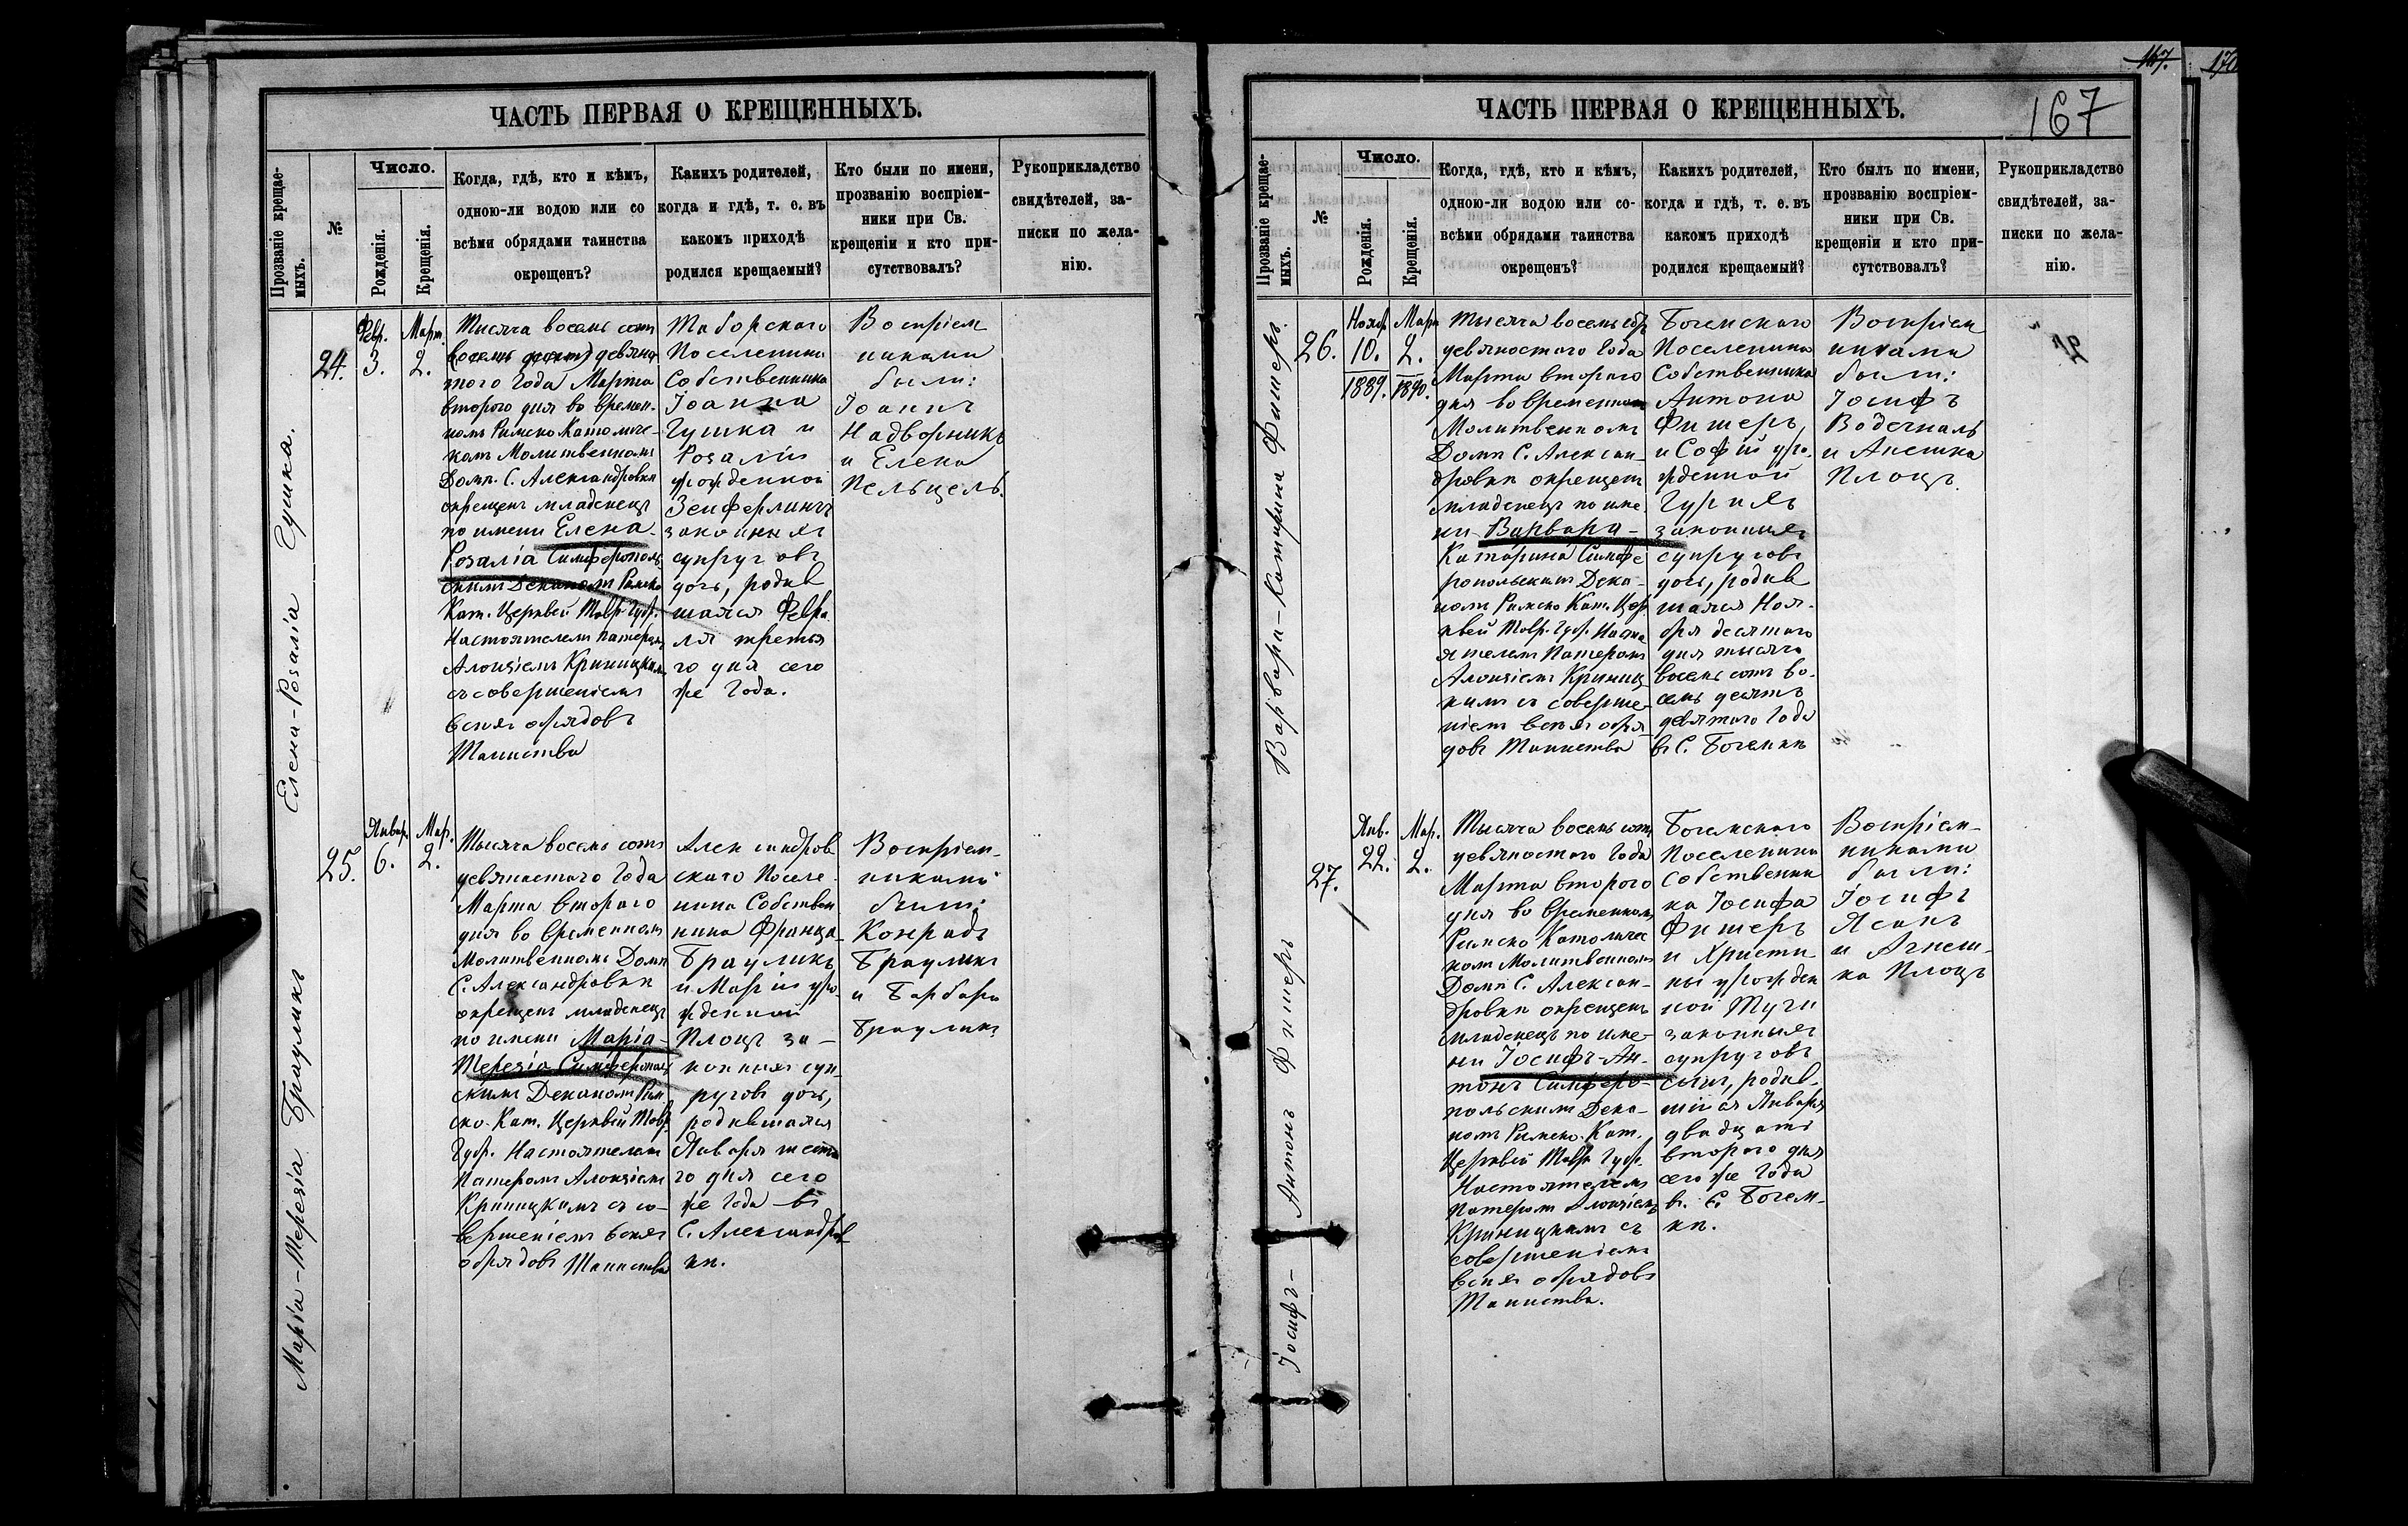 ЧАСТЬ ПЕРВАЯ О КРЕЩЕННЫХЪ.
Прозваніе крещае-
мыхъ.
№
Число.
Рожденія.
Крещенія.
Когда, гдѣ, кто и кѣмъ,
одною-ли водою или со
всѣми обрядами таинства
окрещенъ?
Какихъ родителей,
когда и гдѣ, т. е. въ
какомъ приходѣ
родился крещаемый?
Кто были по имени,
прозванію воспріем-
ники при Св.
крещеніи и кто при-
сутствовалъ?
Рукоприкладство
свидѣтелей, за-
писки по жела-
нію.
Елена-Розалія Гушка.
24.
Февр.
3.
Март.
2.
Тысяча восемь сотъ
(восемь десят) девяно
того Года Марта
втораго дня во времен-
номъ Римско Католиче-
комъ Молитвенномъ
Домѣ. С. Александровки
окрещенъ младенецъ
по имени Елена-
Розалія Симферополь
скимъ Деканомъ Римско
Кат. Церквей Тавр. Губ.
Настоятелемъ Патеромъ
Алоизіемъ Криницкимъ
съ совершеніемъ
всѣхъ обрядовъ
Таинства
Таборскаго
Поселенина
Собственника
Іоанна
Гушка и
Розаліи
урожденной
Зейферлингъ
законныхъ
супруговъ
дочь, родив
шаяся Февра
ля третья
го дня сего
же Года.
Воспріем
никами
были:
Іоаннъ
Надворникъ
и Елена
Пельцель.
Марія-Терезія Брауликъ
25.
Январ.
6.
Мар.
2.
Тысяча восемь сотъ
девяностаго Года
Марта втораго
дня во временномъ
Молитвенномъ Домѣ
С. Александровки
окрещенъ младенецъ
по имени Марія-
Терезія Симферополь
скимъ Деканомъ Рим
ско-Кат. Церквей Тавр.
Губ. Настоятелемъ
Патеромъ Алоизіемъ
Криницкимъ съ со-
вершеніемъ всѣхъ
обрядовъ Таинства
Александров
скаго Поселе-
нина Собствен
ника Франца
Брауликъ
и Маріи уро-
жденной
Плоцъ за-
конныхъ суп-
руговъ дочь,
родившаяся
Января шеста
го дня сего
же Года въ
С. Александров
кѣ.
Воспріем-
никами
были:
Конрадъ
Брауликъ
и Барбара
Брауликъ
167.
170
167
ЧАСТЬ ПЕРВАЯ О КРЕЩЕННЫХЪ.
Прозваніе крещае-
мыхъ.
№
Число.
Рожденія.
Крещенія.
Когда, гдѣ, кто и кѣмъ,
одною-ли водою или со-
всѣми обрядами таинства
окрещенъ?
Какихъ родителей,
когда и гдѣ, т. е. въ
какомъ приходѣ
родился крещаемый?
Кто былъ по имени,
прозванію воспріем-
ники при Св.
крещеніи и кто при-
сутствовалъ?
Рукоприкладство
свидѣтелей, за-
писки по жела-
нію.
Варвара-Катарина Фишеръ.
26.
Нояб.
10.
1889.
Март
2.
1890.
Тысяча восемь сотъ
девяностаго Года
Марта втораго
дня во временномъ
Молитвенномъ
Домѣ С. Алексан-
дровки окрещенъ
младенецъ по име-
ни Варвара-
Катарина Симфе
ропольскимъ Дека-
номъ Римско Кат. Цер
квей Тавр. Губ. Насто
ятелемъ Патеромъ
Алоизіемъ Криниц
кимъ съ соверше-
ніемъ всѣхъ обря-
довъ Таинства
Богемскаго
Поселенина
Собственника
Антона
Фишеръ,
и Софіи уро-
жденной
законныхъ
супруговъ
дочь, родив
шаяся Ноя-
бря десятаго
дня тысяча
восемь сотъ во-
семь десятъ
девятаго Года
въ С. Богемкѣ
Воспріем
никами
были:
Іосифъ
Водечналь
и Анешка
Плоцъ.
Іосифъ-Антонъ Фишеръ
27.
Янв.
22.
Мар.
2.
Тысяча восемь сотъ
девяностаго Года
Марта втораго
дня во временномъ
Римско Католичес
комъ Молитвенномъ
Домѣ С. Алексан-
дровки окрещенъ
младенецъ по име-
ни Іосифъ-Ан-
тонъ Симферо-
польскимъ Дека-
номъ Римско-Кат.
Церквей Тавр. Губ.
Настоятелемъ
Патеромъ Алоизіемъ
Криницкимъ съ
совершеніемъ
всѣхъ обрядовъ
Таинства.
Богемскаго
Поселенина
Собственни
ка Іосифа
Фишеръ
и Христи
ны урожден
ной
законныхъ
супруговъ
сынъ, родив-
шійся Января
двадцать
втораго дня
сего же Года
въ С. Богем-
кѣ.
Воспріем-
никами
были:
Іосифъ
Ясанъ
и Агнеш-
ка Плоцъ